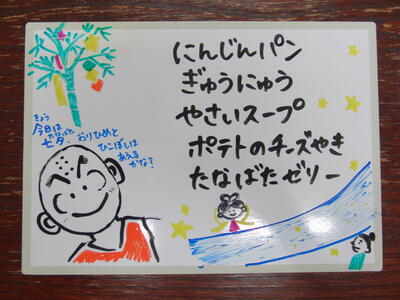 にんじんパン
ぎゅうにゅう
やさいスープ
ポテトのチーズやき
たなばたゼリー
きょう
今日は
たなばた
七夕
おりひめと
ひこぼしは
あえる
かな?